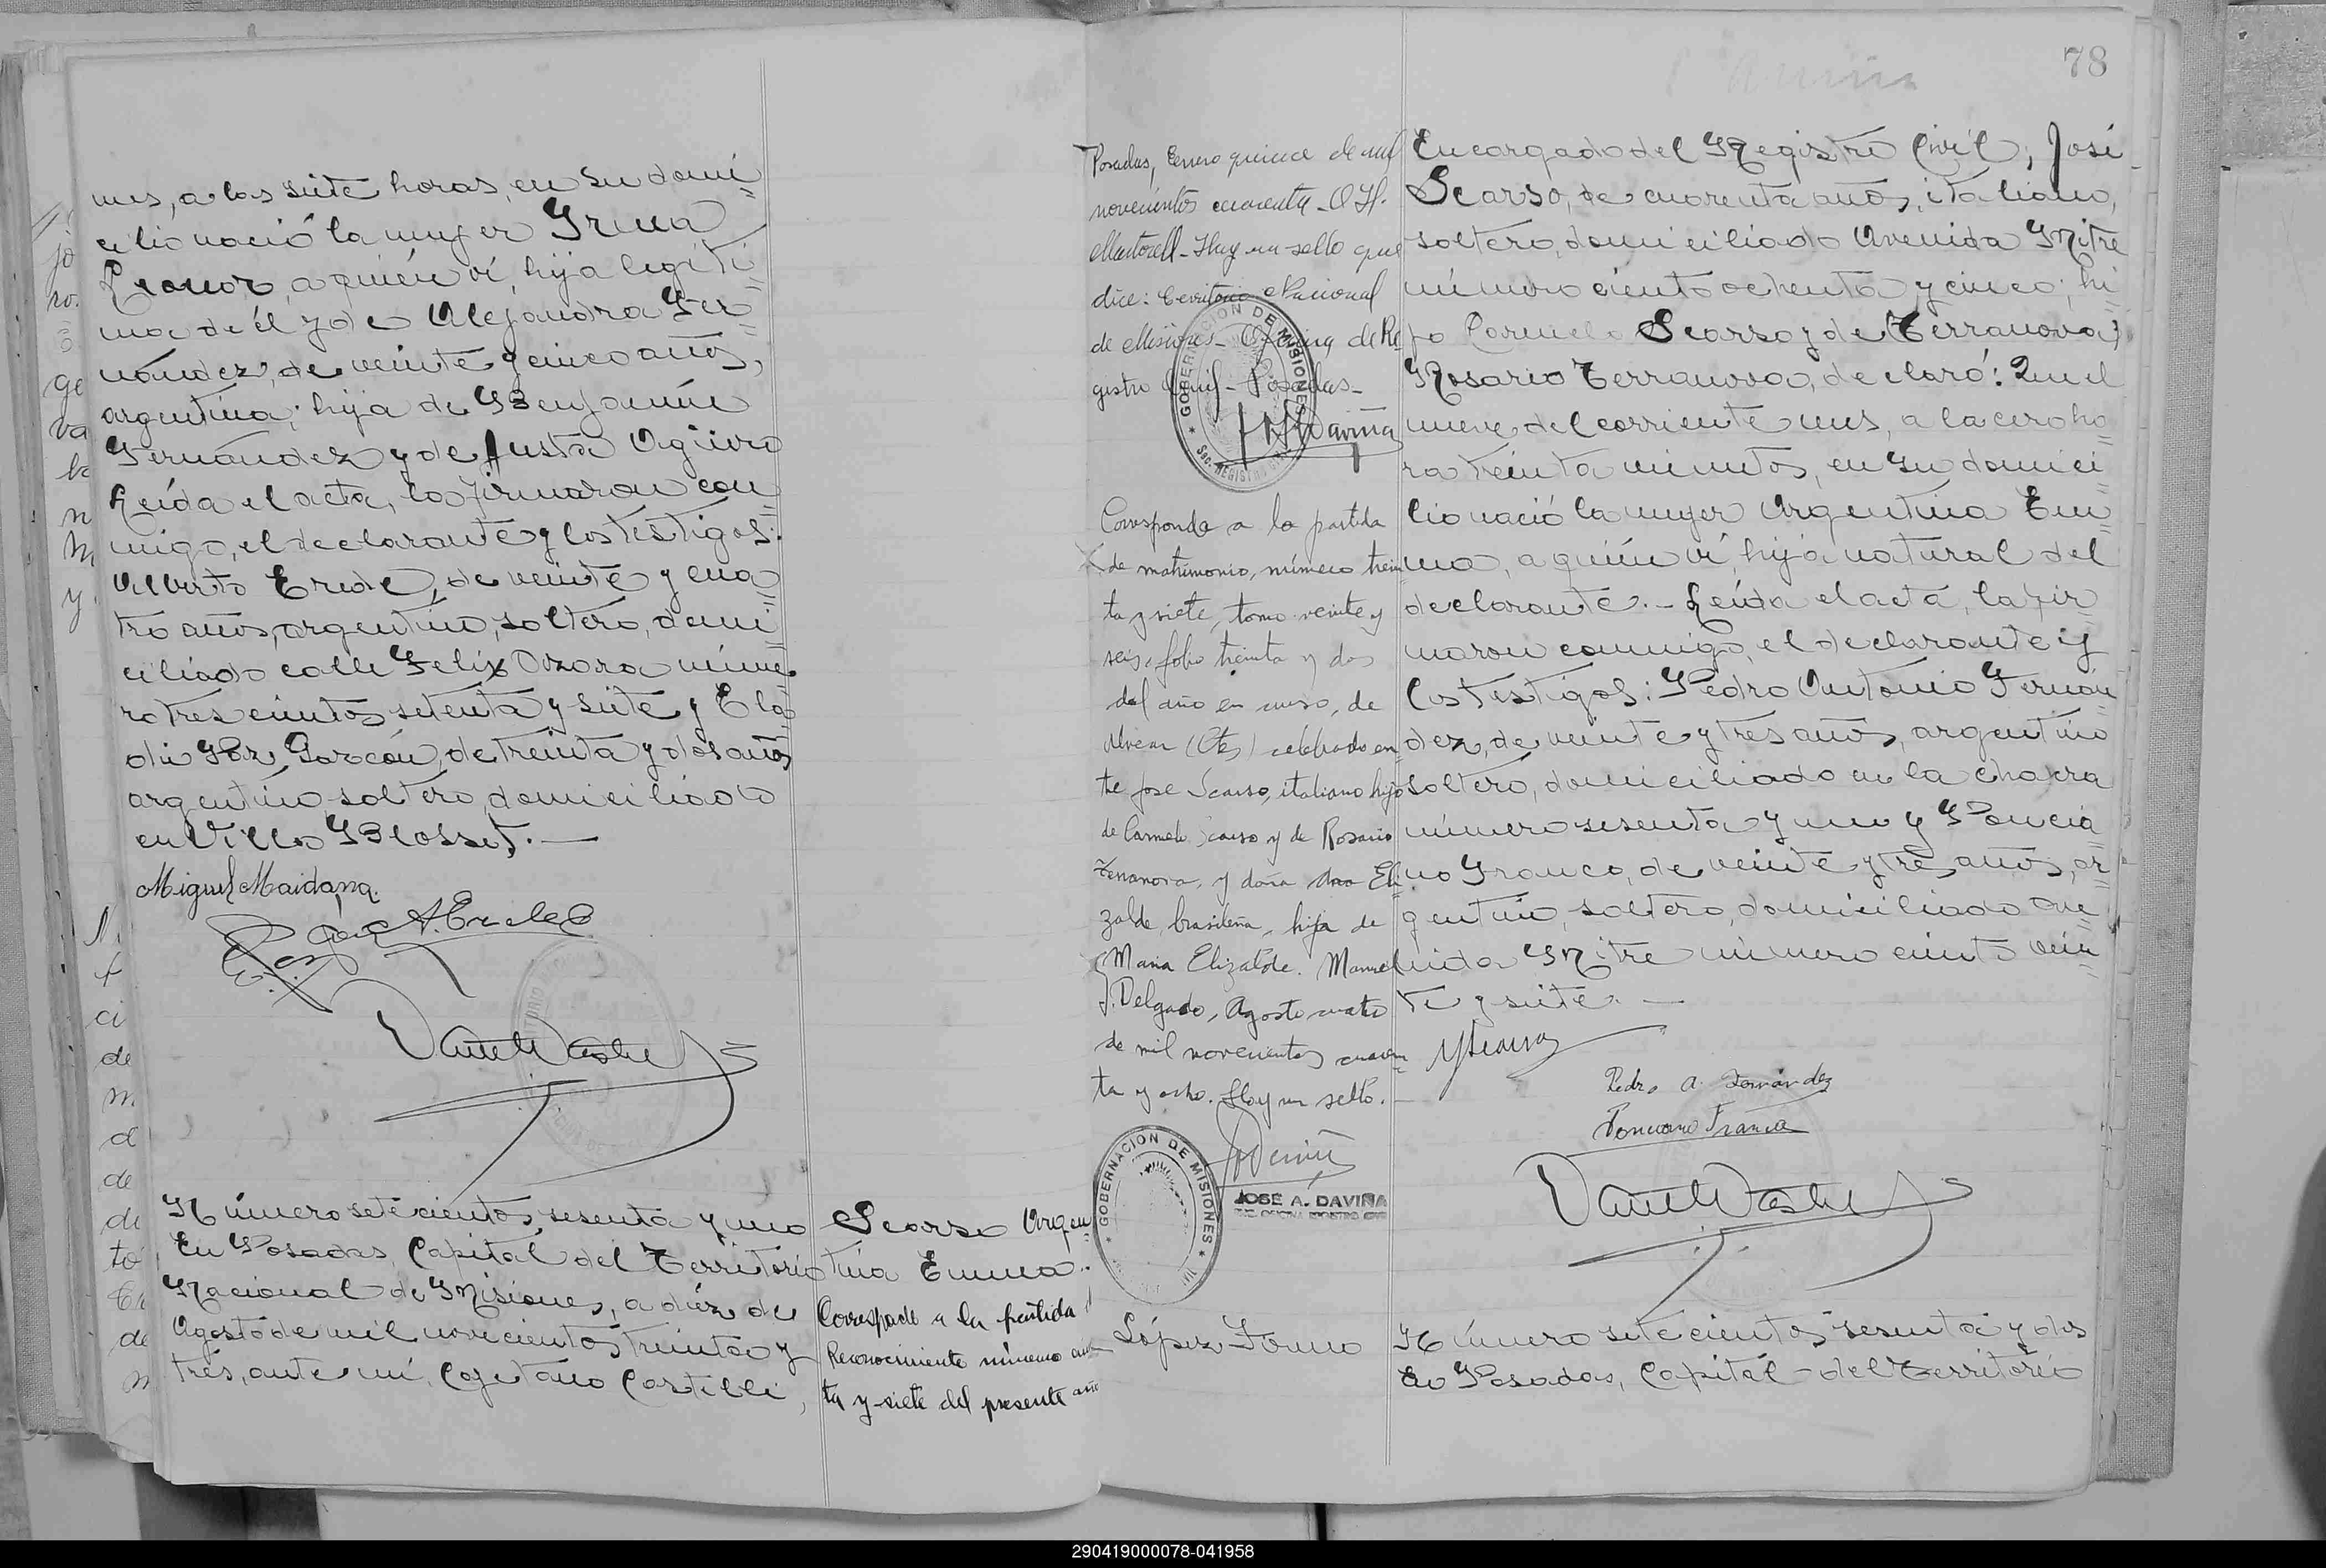 mes, a las siete horas, en su domi=
cilio nació la mujer Irma
Leonor, a quién ví, hija legíti=
ma de él y de Alejandra Fer=
nández, de veinte y cinco años,
argentina; hija de Benjamín
Fernández y de Justa
Leída el acta, la firmaron con=
migo, el declarante y los testigos:
Alberto Erede, de veinte y cua=
tro años, argentino, soltero, domi=
ciliado calle Felix Bogado núme=
ro trescientos setenta y siete y Ela=
dio Garcón, de treinta y dos años
argentino, soltero, domiciliado
en Villa Blosset.—
Miguel Maidana.
Número setecientos sesenta y uno
En Posadas, Capital del Territorio
Nacional de Misiones, a diéz de
Agosto de mil novecientos treinta y
trés, ante mí, Cayetano Castelli,
Scarso Argen=
tina Emma.
Corresponde a la partida
Reconocimiento número cuaren
ta y siete del presente año
Posadas, Enero quince de mil
novecientos cuarenta - O. H.
Martorell - Hay un sello que
dice: Territorio Nacional
de Misiones - Oficina de Re
gistro Civil - Posadas -
GOBERNACION DE MISIONES
Sec. REGISTRO CIVIL
Corresponde a la partida
de matrimonio, número trein
ta y siete, tomo veinte y
seis, folio treinta y dos
del año en curso, de
Alvear (Ctes) celebrado en
tre José Scarso, italiano hijo
de Carmelo Scarso y de Rosario
Terranova, y doña Ana Eli
zalde, brasileña, hija de
Maria Elizalde. Manuel
J. Delgado, Agosto cuatro
de mil novecientos cuaren
ta y ocho. Hay un sello.—
GOBERNACION DE MISIONES
JOSÉ A. DAVIÑA
López Forno
78
Encargado del Registro Civil; José
Scarso, de cuarenta años, italiano,
soltero, domiciliado Avenida Mitre
número ciento ochenta y cinco; hi
jo Carmelo Scarso y de Terranova
Rosario Terranova, declaró: Que el
nueve del corriente mes, a la cero ho=
ra treinta minutos, en su domici
lio nació la mujer Argentina Em=
ma, a quién ví, hija natural del
declarante.— Leída el acta, la fir
maron conmigo, el declarante y
los testigos: Pedro Antonio Fernán=
dez, de veinte y tres años, argentino
soltero, domiciliado en la chacra
número sesenta y uno y Poncia=
no Franco, de veinte y tres años, ar=
gentino, soltero, domiciliado Ave=
nida Mitre número ciento vein=
te y siete.—
JScarso
Pedro A. Fernández
Ponciano Franco
Número setecientos sesenta y dos
En Posadas, Capital del Territorio
290419000078-041958